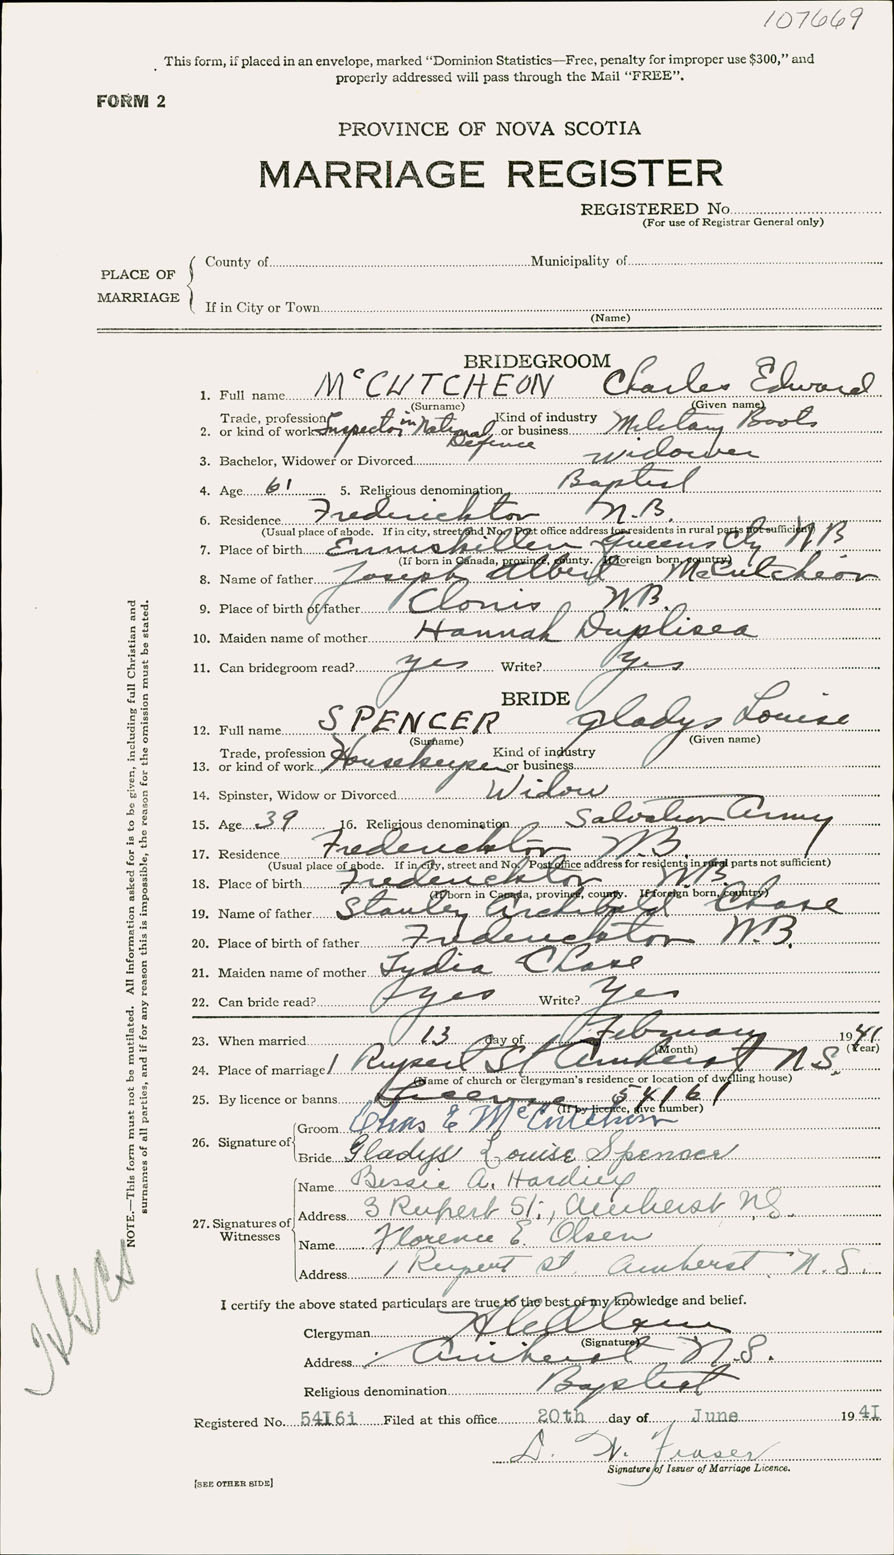 107669
This form, if placed in an envelope, marked “Dominion Statistics—Free, penalty for improper use $300,” and
properly addressed will pass through the Mail “FREE”.
FORM 2
PROVINCE OF NOVA SCOTIA
MARRIAGE REGISTER
REGISTERED No.
(For use of Registrar General only)
PLACE OF MARRIAGE
County of Municipality of
If in City or Town
(Name)
BRIDEGROOM
1. Full name McCUTCHEON Charles Edward
(Surname) (Given name)
2. Trade, profession or kind of work Inspector in National Defence Kind of industry or business Military Boots
3. Bachelor, Widower or Divorced widower
4. Age 61 5. Religious denomination Baptist
6. Residence Fredericton N.B.
(Usual place of abode. If in city, street and No. Post office address for residents in rural parts not sufficient)
7. Place of birth Enniskillen Queens Cty NB
(If born in Canada, province, county. If foreign born, country)
8. Name of father Joseph Albert McCutcheon
9. Place of birth of father Clonis N.B.
10. Maiden name of mother Hannah Duplisea
11. Can bridegroom read? yes Write? yes
BRIDE
12. Full name SPENCER Gladys Louise
(Surname) (Given name)
13. Trade, profession or kind of work Housekeeper Kind of industry or business
14. Spinster, Widow or Divorced Widow
15. Age 39 16. Religious denomination Salvation Army
17. Residence Fredericton N.B.
(Usual place of abode. If in city, street and No. Post office address for residents in rural parts not sufficient)
18. Place of birth Fredericton N.B.
(If born in Canada, province, county. If foreign born, country)
19. Name of father Stanley Archibald Chase
20. Place of birth of father Fredericton N.B.
21. Maiden name of mother Lydia Chase
22. Can bride read? yes Write? Yes
23. When married 13 day of February 1941
(Month) (Year)
24. Place of marriage 1 Rupert St Amherst N.S.
(Name of church or clergyman's residence or location of dwelling house)
25. By licence or banns Licence 54161
(If by licence, give number)
26. Signature of Groom Chas E McCutcheon
Bride Gladys Louise Spencer
27. Signatures of Witnesses
Name Bessie A. Harding
Address 3 Rupert St., Amherst N.S.
Name Florence E. Olsen
Address 1 Rupert St. Amherst, N.S.
I certify the above stated particulars are true to the best of my knowledge and belief.
Clergyman
(Signature)
Address Amherst N.S.
Religious denomination Baptist
Registered No. 54161 Filed at this office 20th day of June 1941
D. W. Fraser
Signature of Issuer of Marriage Licence.
[SEE OTHER SIDE]
NOTE.—This form must not be mutilated. All Information asked for is to be given, including full Christian and
surnames of all parties, and if for any reason this is impossible, the reason for the omission must be stated.